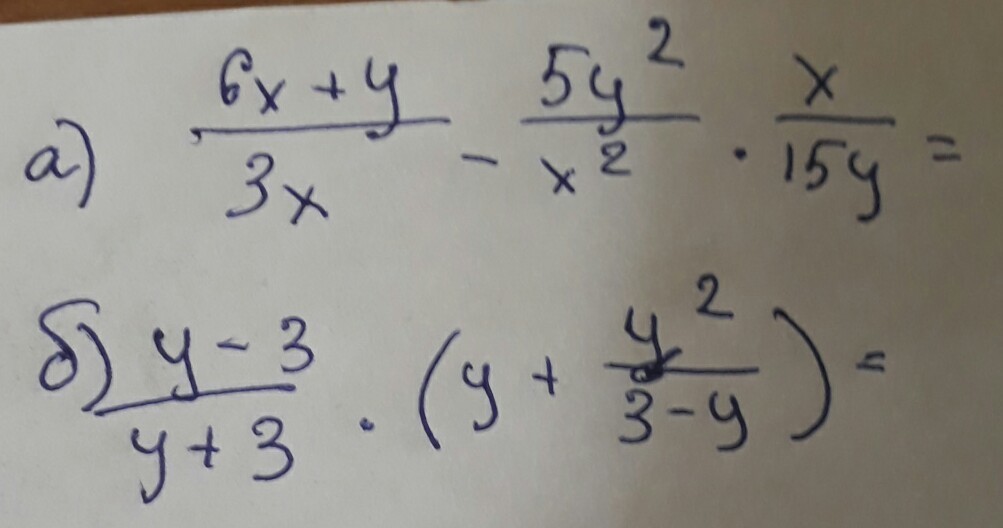 а) (6x + y)/(3x) - (5y²)/(x²) · x/(15y) =
б) (y - 3)/(y + 3) · (y + y²/(3 - y)) =